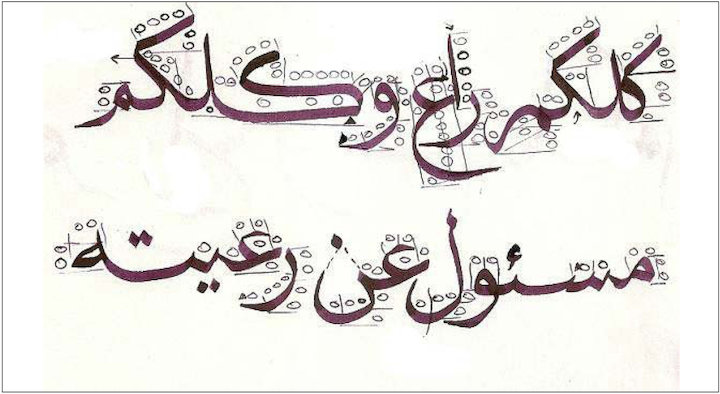 كلكم راع وكلكم
مسئول عن رعيته